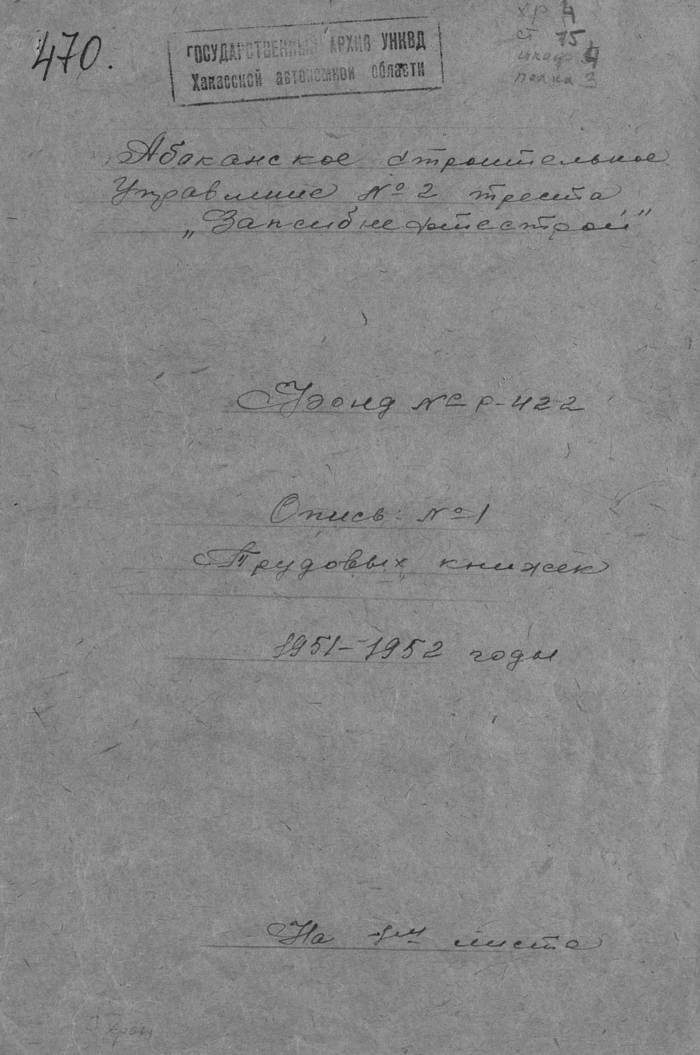 470.
ГОСУДАРСТВЕННЫЙ АРХИВ УНКВД
Хакасской автономной области
хр 4
ст 15
шкаф 4
полка 3
Абаканское строительное
Управление № 2 треста
„Запсибнефтестрой"
Фонд № Р-422
Опись № 1
Трудовых книжек
1951-1952 годы
На 1ом листе